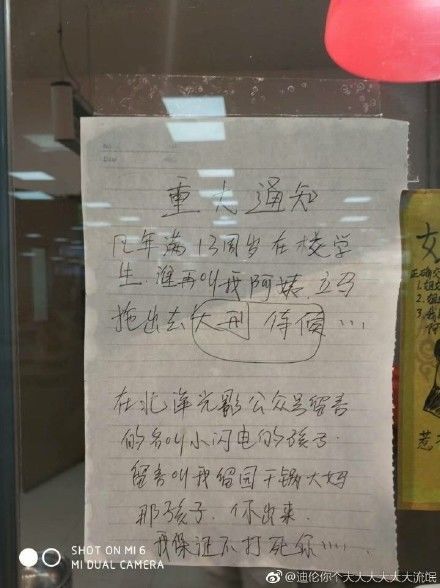 重大通知
凡年满13周岁在校学
生.谁再叫我阿姨立马
拖出去大刑 侍候…
在北洋光影公众号留言
的名叫小闪电的孩子.
留言叫我留园干锅大妈
那孩子.你出来.
我保证不打死你……
女
正确
1.
2.
3.
惹
SHOT ON MI 6
MI DUAL CAMERA
@迪伦你个大大大大大大流氓